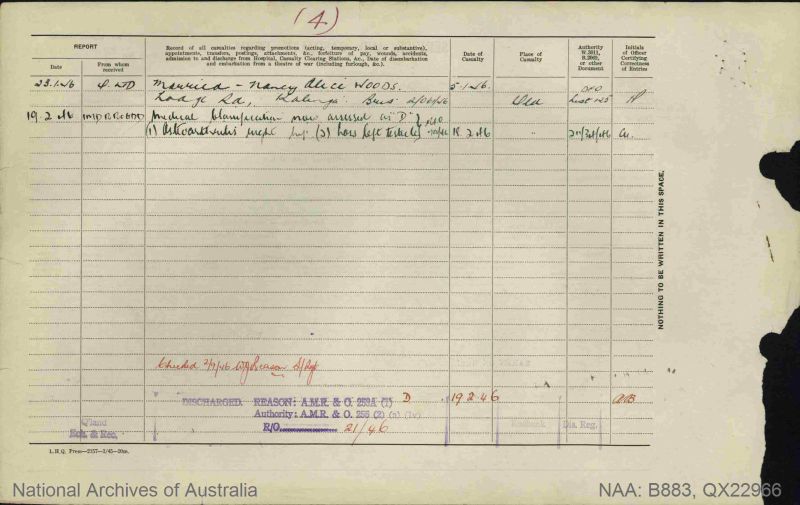 (4)
REPORT
Record of all casualties regarding promotions (acting, temporary, local or substantive), appointments, transfers, postings, attachments, &c., forfeiture of pay, wounds, accidents, admission to and discharge from Hospital, Casualty Clearing Stations, &c., Date of disembarkation and embarkation from a theatre of war (including furlough, &c.).
Date of Casualty
Place of Casualty
Authority
or other Document
Initials of Officer Certifying Correctness of Entries
Date
From whom received
23.1.46
Married - Nancy Alice WOODS.
5.1.46
Lodge Rd, Kalinga. Bris
Qld
List 145
19.2.46
Medical Classification now assessed as "D"
(1) Osteoarthritis right hip (2) loss left testicle
18.2.46
NOTHING TO BE WRITTEN IN THIS SPACE.
Checked 2/9/46
DISCHARGED. REASON: A.M.R. & O. 253A (1) D
19 2 46
Authority: A.M.R. & O. 256 (2) (a) (iv)
Q'land
Ech. & Rec.
R/O 21/46
Dis. Reg.
L.H.Q. Press—2157—3/45—20m.
National Archives of Australia
NAA: B883, QX22966